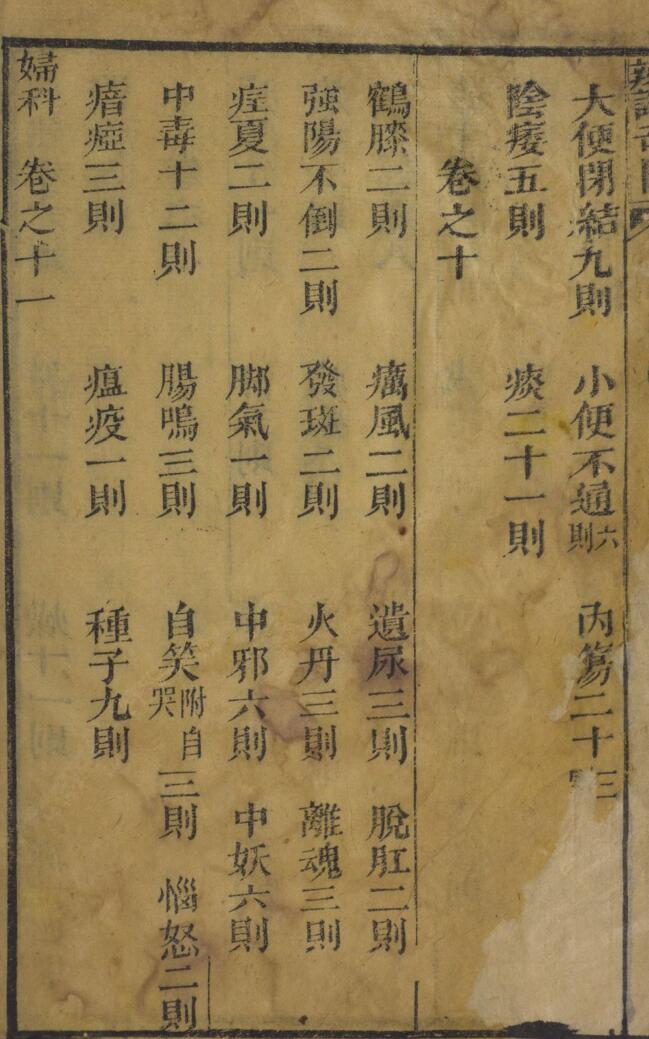 大便閉結九則 小便不通六則 內傷二十三
陰痿五則 痰二十一則
卷之十
鶴膝二則 癘風二則 遺尿三則 脫肛二則
強陽不倒二則 發斑二則 火丹三則 離魂三則
疰夏二則 脚氣一則 中邪六則 中妖六則
中毒十二則 腸鳴三則 自笑附自哭三則 惱怒二則
瘖瘂三則 瘟疫一則 種子九則
婦科 卷之十一